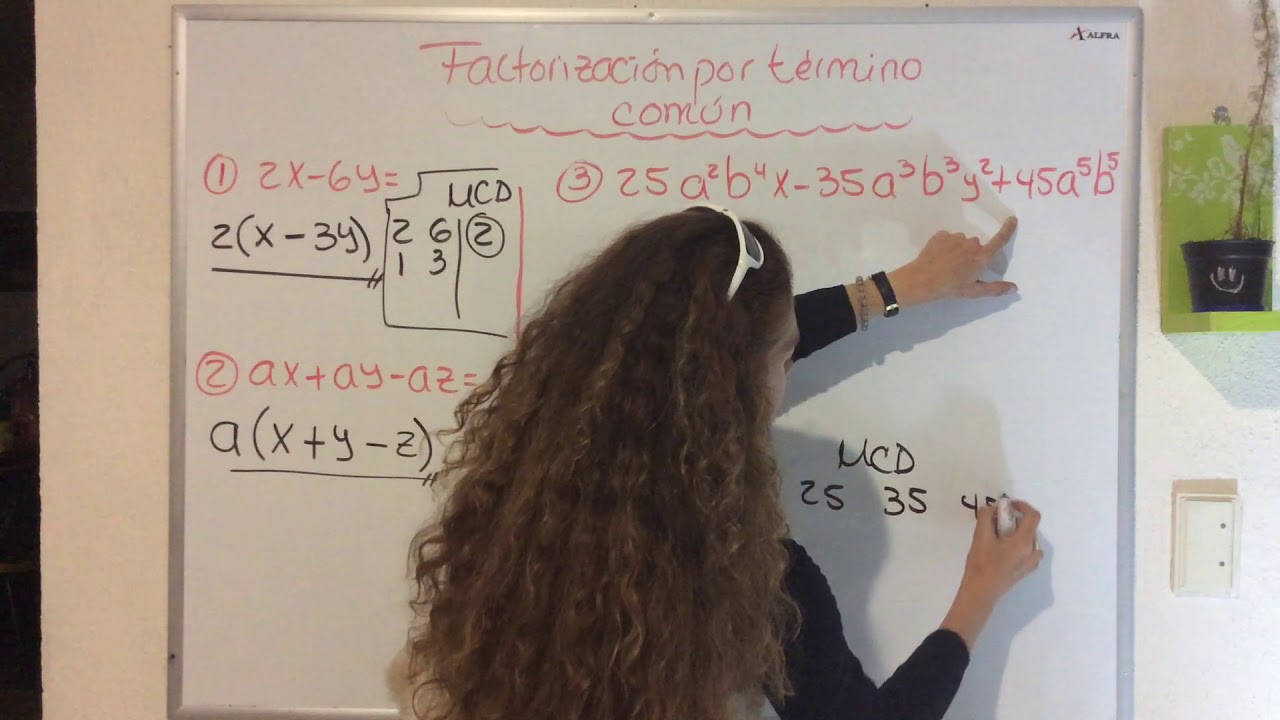 ALFRA
Factorización por término
común
① 2x-6y=
2(x-3y)
MCD
2 6 ②
1 3
② ax+ay-az=
a(x+y-z)
③ 25a²b⁴x-35a³b³y²+45a⁵b⁵
MCD
25 35 45